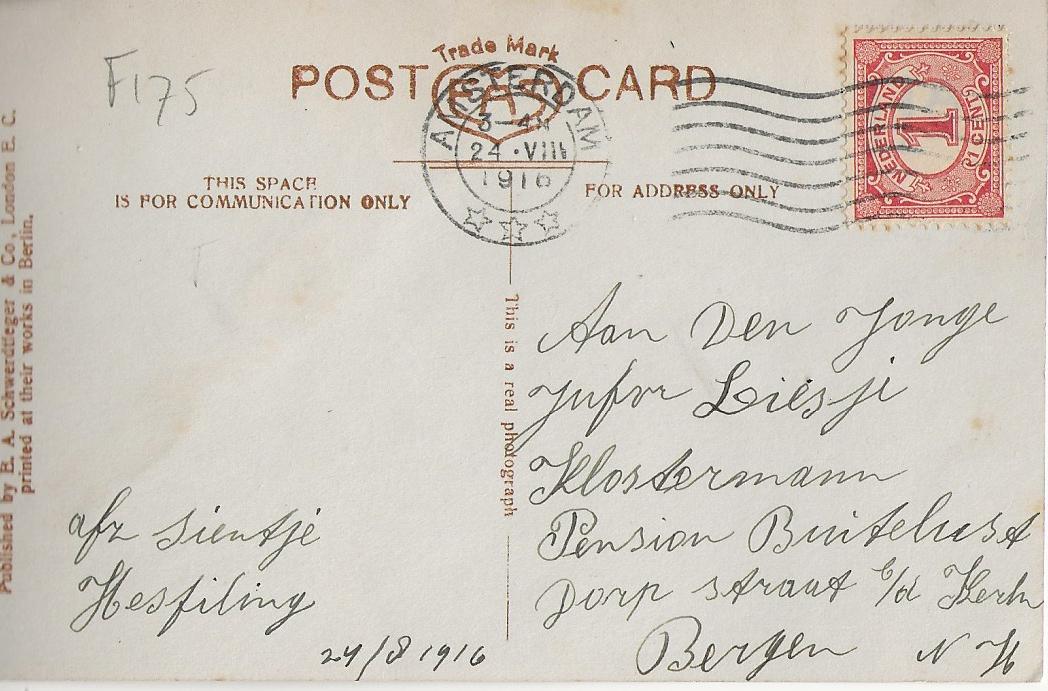 F175
Trade Mark
POST CARD
AMSTERDAM
3-AM
24·VIII
1916
NEDERLAND
1
1 CENT
THIS SPACE
IS FOR COMMUNICATION ONLY
FOR ADDRESS ONLY
Published by E. A. Schwerdtfeger & Co, London E. C.
printed at their works in Berlin.
This is a real photograph
Aan Den Jonge
Jufor Liesje
Klostermann
Pension Buitelust
Dorp straat b/d Kerk
Bergen N H
afz Sientje
Hesfiling
24/8 1916